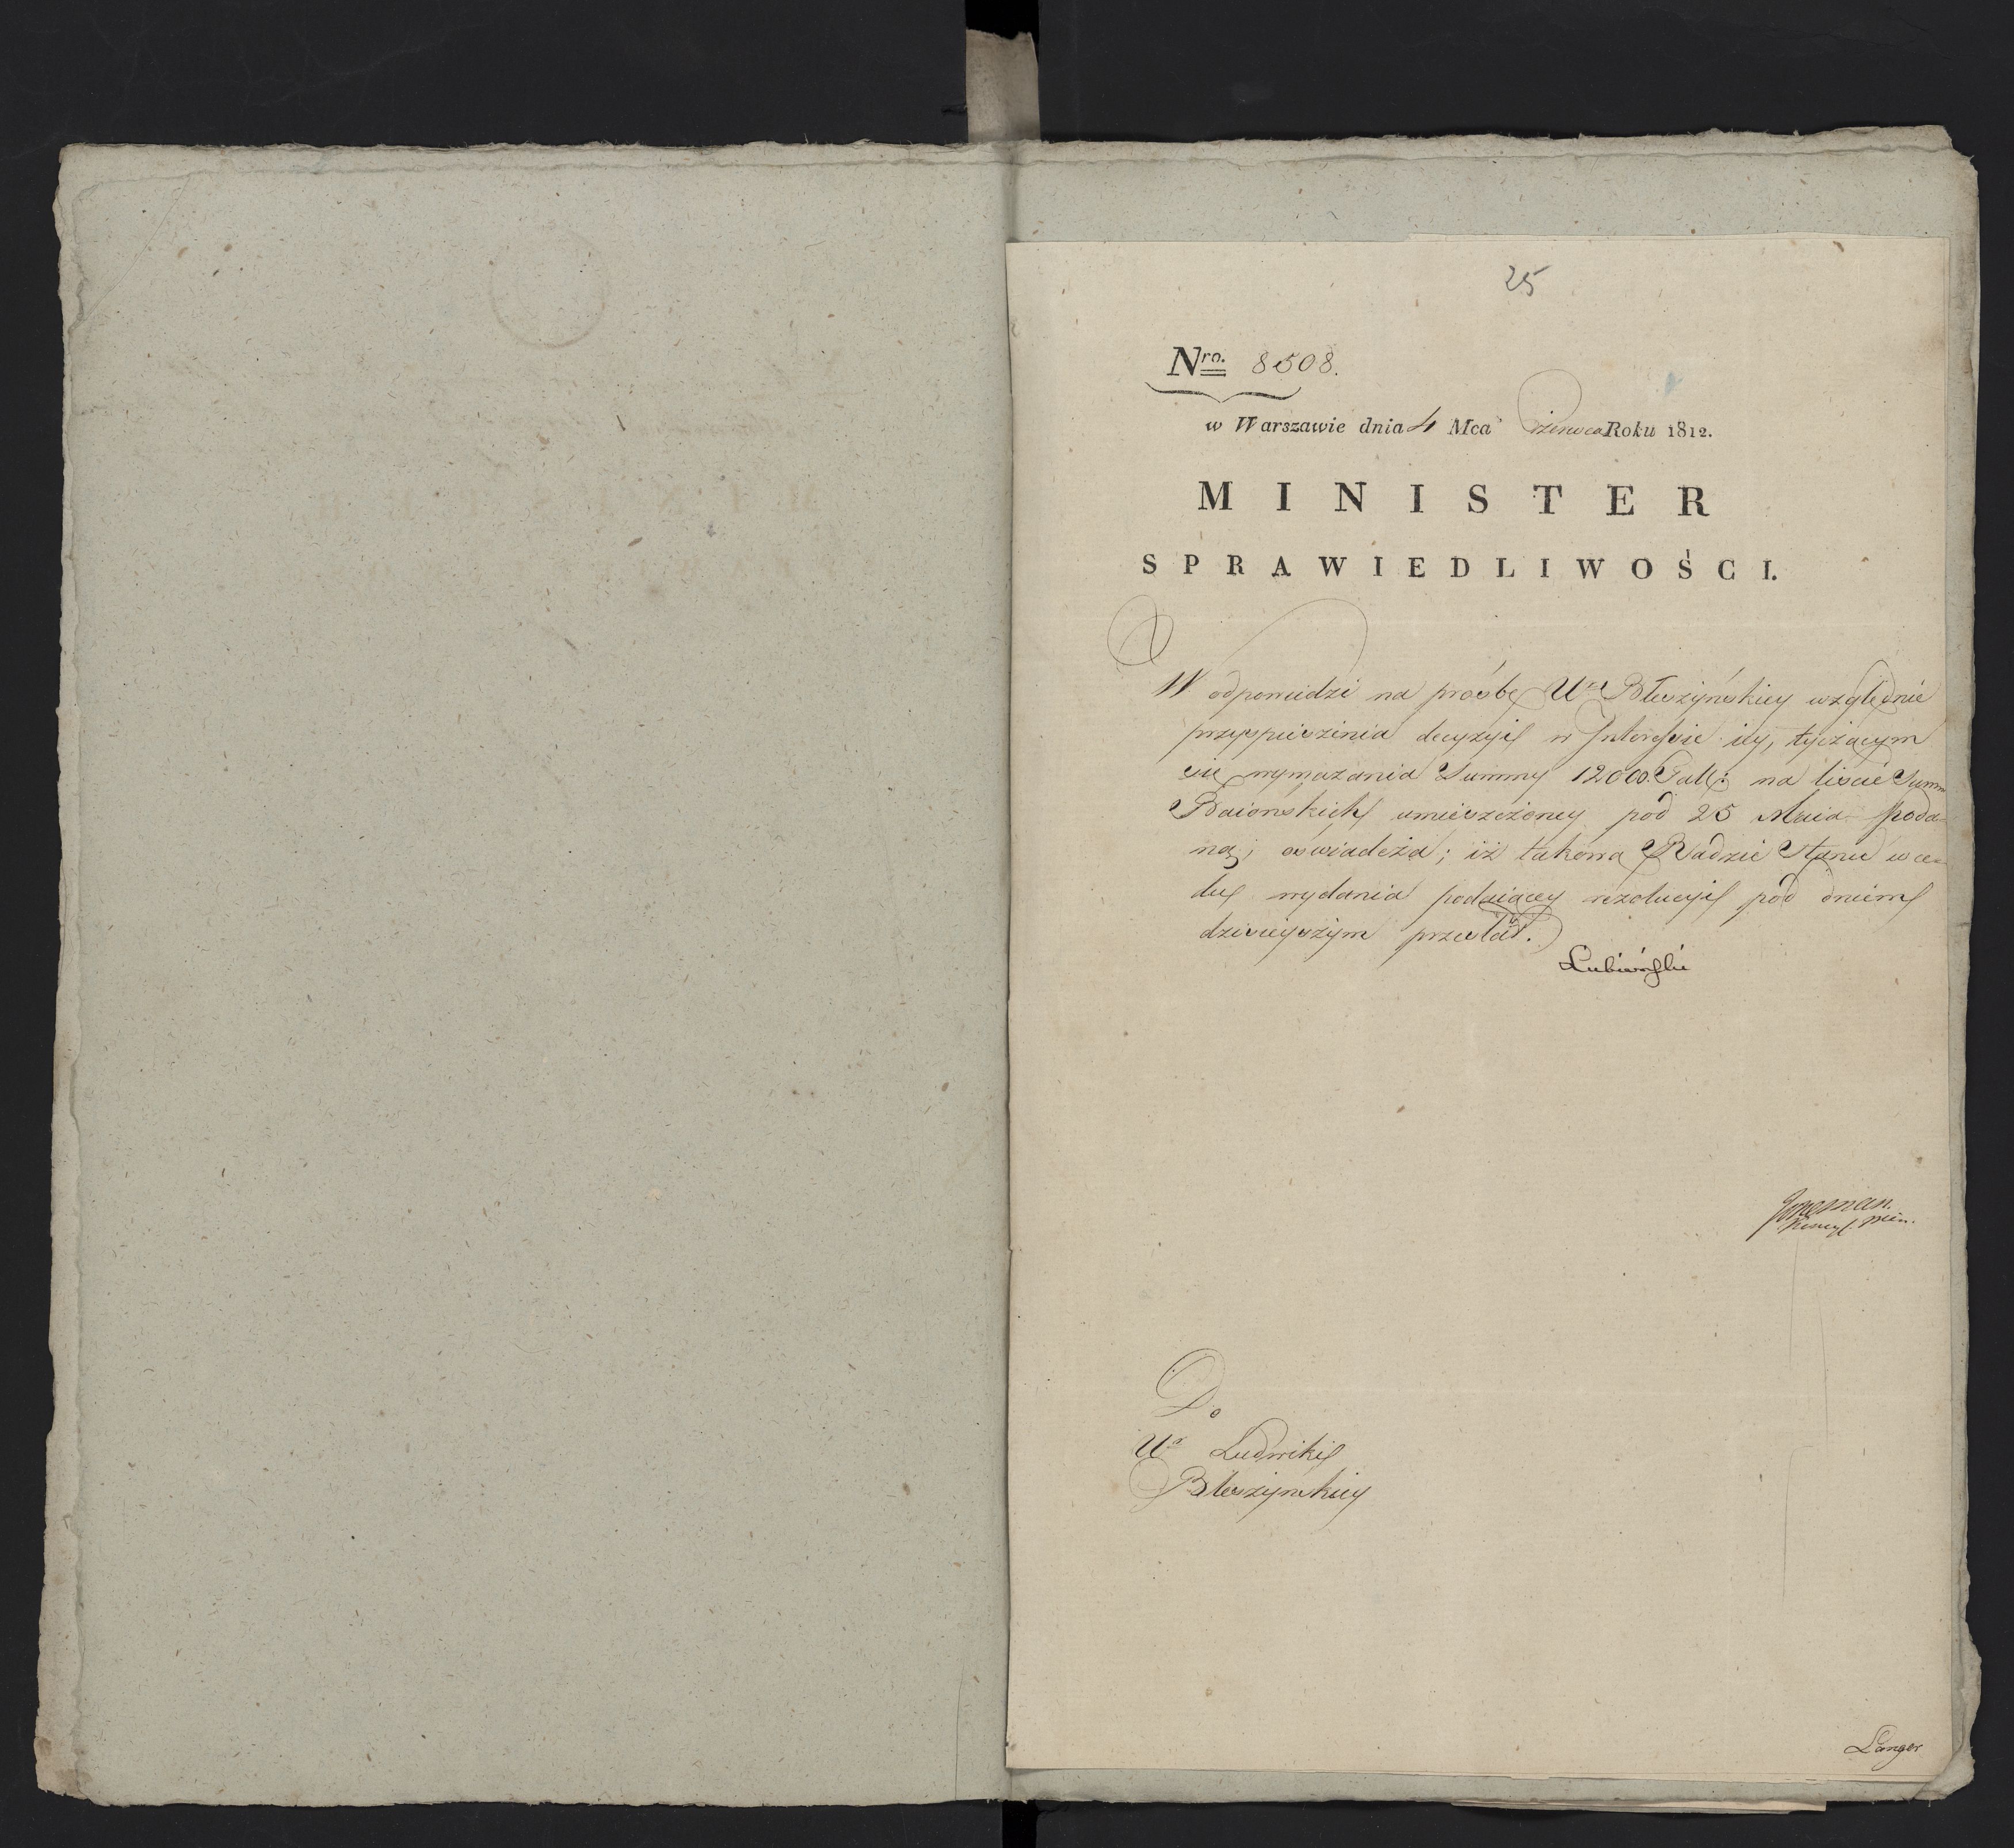 25
Nro. 8508.
w Warszawie dnia 4 Mca Czerwca Roku 1812.
MINISTER
SPRAWIEDLIWOŚCI.
W odpowiedzi na prośbę Ur Błeszyńskiey względnie
przyspieszenia decyzyi w Interessie iey, tyczącym
się wymazania Summy 12000. Tall: na liście Summ
Baiońskich umieszczoney pod 25 Maia poda-
ną; oświadcza; iż takową Radzie Stanu w ce-
lu wydania rezolucyi pod dniem
dzisieyszym przesłał.
Lubieński
Min.
Do
Ur Ludwiki
Błeszyńskiey
Langer